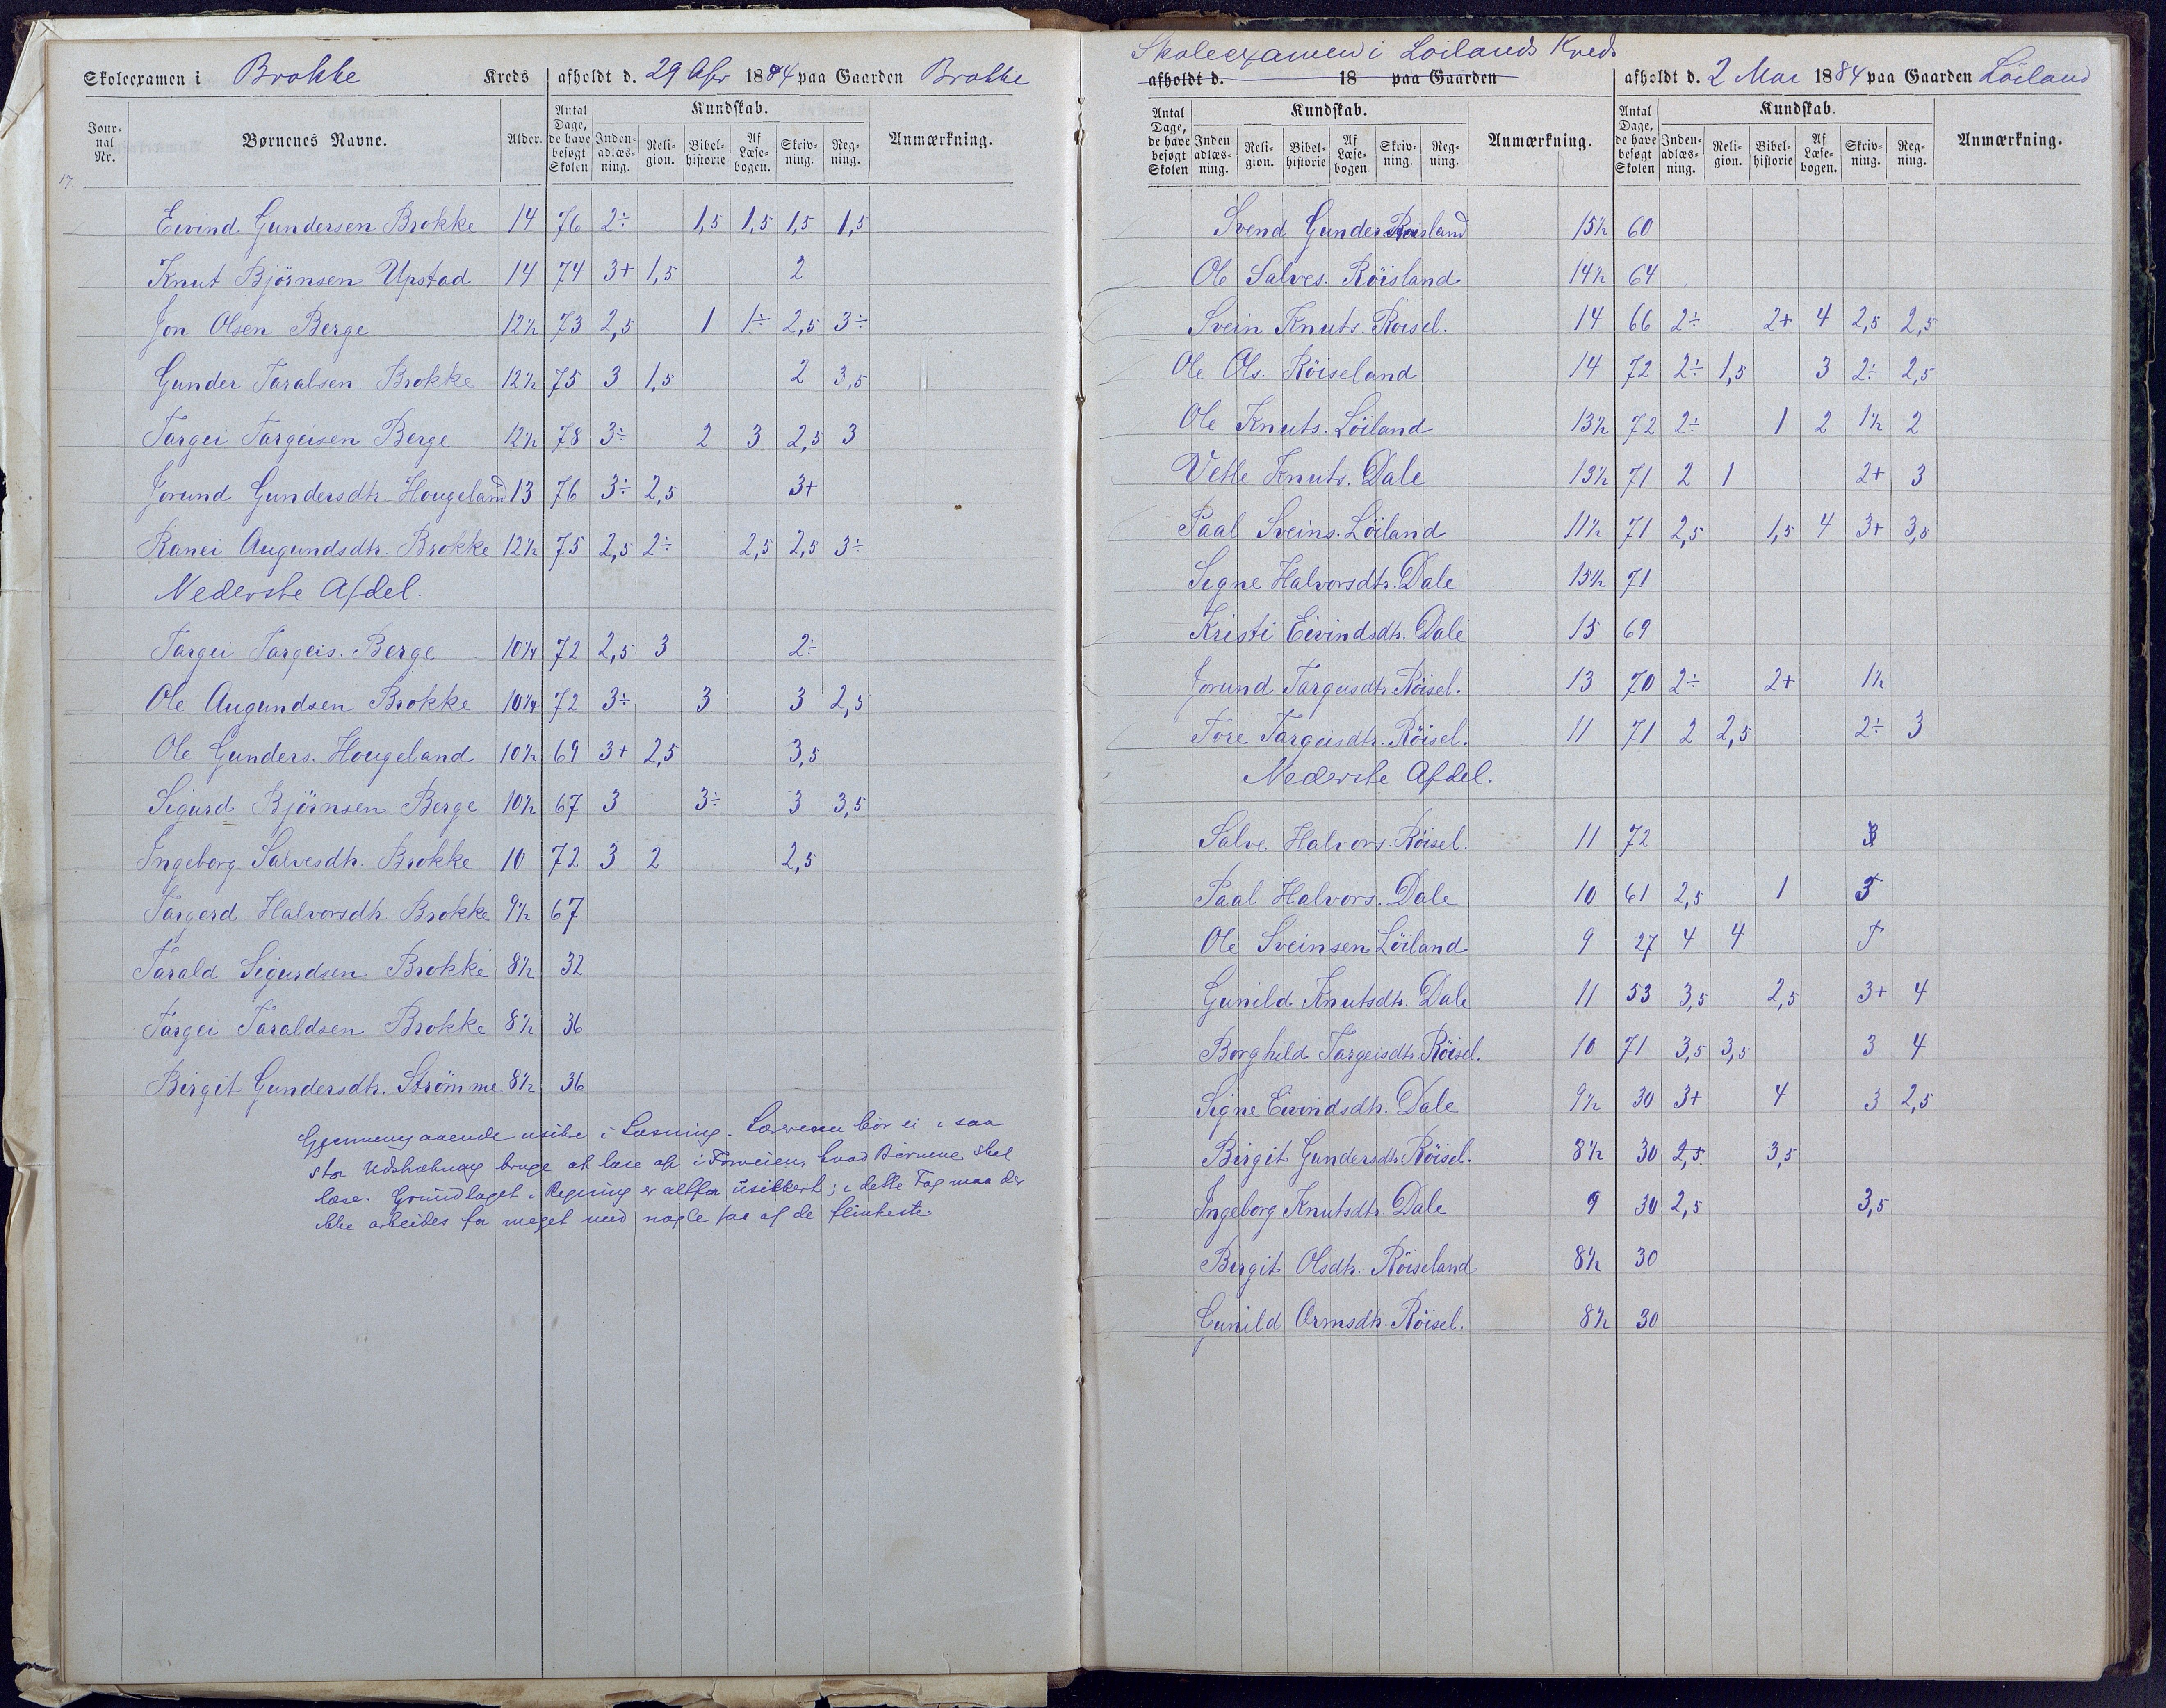 Skoleexamen i Brokke Kreds afholdt d. 29 Apr 1884 paa Gaarden Brokke
Jour-nal Nr. Børnenes Navne. Alder. Antal Dage, de have besøgt Skolen Kundskab. Inden-adlæs-ning. Reli-gion. Bibel-historie Af Læse-bogen. Skriv-ning. Reg-ning. Anmærkning.
17.
Eivind Gundersen Brokke 14 76 2÷ 1,5 1,5 1,5 1,5
Knut Bjørnsen Upstad 14 74 3+ 1,5 2
Jon Olsen Berge 12½ 73 2,5 1 1÷ 2,5 3÷
Gunder Taralsen Brokke 12½ 75 3 1,5 2 3,5
Targei Targeisen Berge 12½ 78 3÷ 2 3 2,5 3
Jorund Gundersdtr. Hougeland 13 76 3÷ 2,5 3+
Ranei Augundsdtr. Brokke 12½ 75 2,5 2÷ 2,5 2,5 3÷
Nederste Afdel.
Targei Targeis. Berge 10¼ 72 2,5 3 2÷
Ole Augundsen Brokke 10¼ 72 3÷ 3 3 2,5
Ole Gunders. Hougeland 10½ 69 3+ 2,5 3,5
Sigurd Bjørnsen Berge 10½ 67 3 3÷ 3 3,5
Ingeborg Salvesdtr. Brokke 10 72 3 2 2,5
Targerd Halvorsdtr. Brokke 9½ 67
Tarald Sigurdsen Brokke 8½ 32
Targei Taraldsen Brokke 8½ 36
Birgit Gundersdtr. Strømme 8½ 36
Gjennemgaaende usikre i Læsning. Læreren bør ei i saa
stor Udstrækning bruge at læse op i Forveien, hvad Børnene skal
læse. Grundlaget i Regning er altfor usikkert; i dette Fag maa der
ikke arbeides for meget med nogle faa af de flinkeste.
Skoleexamen i Løilands Kreds
afholdt d. 18 paa Gaarden afholdt d. 2 Mai 1884 paa Gaarden Løiland
Antal Dage, de have besøgt Skolen Kundskab. Inden-adlæs-ning. Reli-gion. Bibel-historie Af Læse-bogen. Skriv-ning. Reg-ning. Anmærkning. Antal Dage, de have besøgt Skolen Kundskab. Inden-adlæs-ning. Reli-gion. Bibel-historie Af Læse-bogen. Skriv-ning. Reg-ning. Anmærkning.
Svend Gunders Røisland 15½ 60
Ole Salves. Røisland 14½ 64
Svein Knuts. Røisel. 14 66 2÷ 2+ 4 2,5 2,5
Ole Ols. Røiseland 14 72 2÷ 1,5 3 2÷ 2,5
Ole Knuts. Løiland 13½ 72 2÷ 1 2 1½ 2
Vetle Knuts. Dale 13½ 71 2 1 2+ 3
Paal Sveins. Løiland 11½ 71 2,5 1,5 4 3+ 3,5
Signe Halvorsdtr. Dale 15½ 71
Kristi Eivindsdtr. Dale 15 69
Jorund Targeisdtr. Røisel. 13 70 2÷ 2+ 1½
Tore Targeisdtr. Røisel. 11 71 2 2,5 2÷ 3
Nederste Afdel.
Salve Halvors. Røisel. 11 72 3
Paal Halvors. Dale 10 61 2,5 1 3
Ole Sveinsen Løiland 9 27 4 4 5
Gunild Knutsdtr. Dale 11 53 3,5 2,5 3+ 4
Borghild Targeisdtr. Røisel. 10 71 3,5 3,5 3 4
Signe Eivindsdtr. Dale 9½ 30 3+ 4 3 2,5
Birgit Gundersdtr. Røisel. 8½ 30 2,5 3,5
Ingeborg Knutsdtr. Dale 9 30 2,5 3,5
Birgit Olsdtr. Røiseland 8½ 30
Gunild Ormsdtr. Røisel. 8½ 30